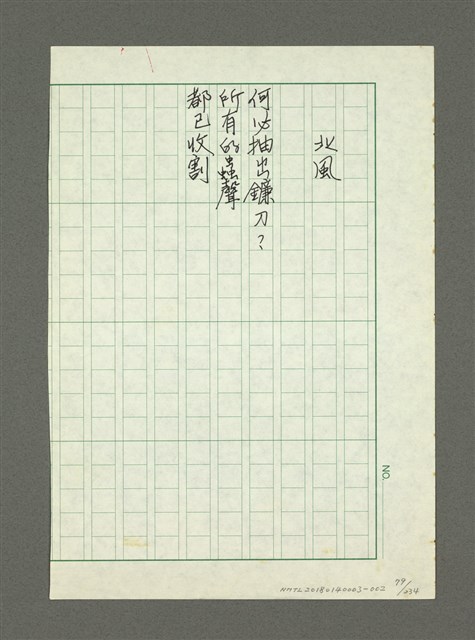 北風
何必抽出鐮刀？
所有的蟲聲
都已收割
NO.
NMTL20180140003-002
79/234